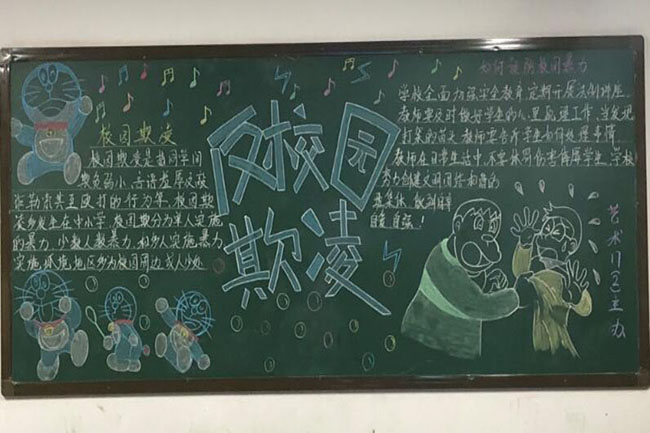 校园欺凌
校园欺凌是指同学间
欺负弱小、言语羞辱及敲
诈勒索甚至殴打的行为等。校园欺
凌多发生在中小学。校园欺凌分为单人实施
的暴力,少数人暴力和多人实施暴力
实施环境地区多为校园周边或人少处
反校园
欺凌
如何预防校园暴力
学校全面加强安全教育,定期开展法制讲座
教师要及时做好学生的
工作,当发现
打架的苗头,教师要告诉学生如何处理事情
教师在日常生活中,不要体罚伤害侮辱学生,学校
努力创建文明团结和谐的
自尊、自强!
艺术
主办